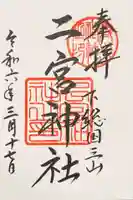 奉拝
下総国三山
二宮神社
令和六年三月十七日